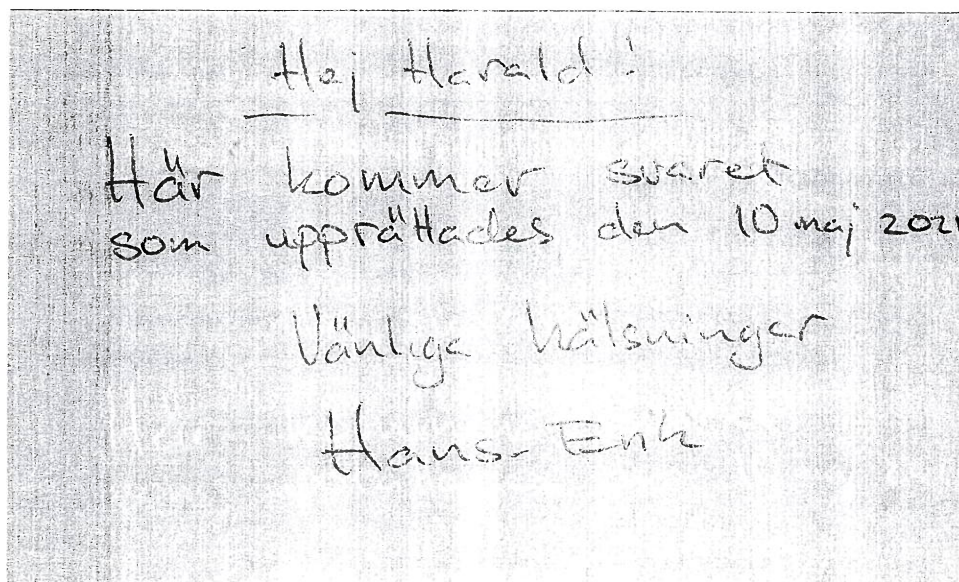 Hej Harald!
Här kommer svaret
som upprättades den 10 maj 2021
Vänliga hälsningar
Hans-Erik